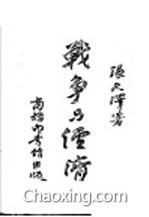 張天澤著
戰爭与經濟
商務印書館出版
Chaoxing.com